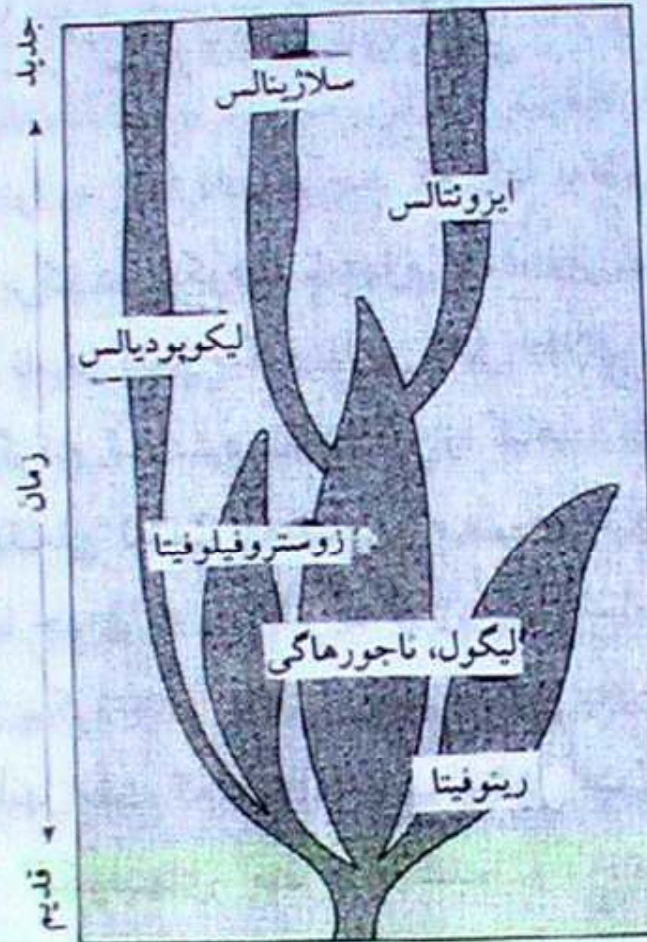 جدید
زمان
قدیم
سلاژینالس
ایزوئتالس
لیکوپودیالس
زوستروفیلوفیتا
لیگول، ناجورهاگی
رینوفیتا